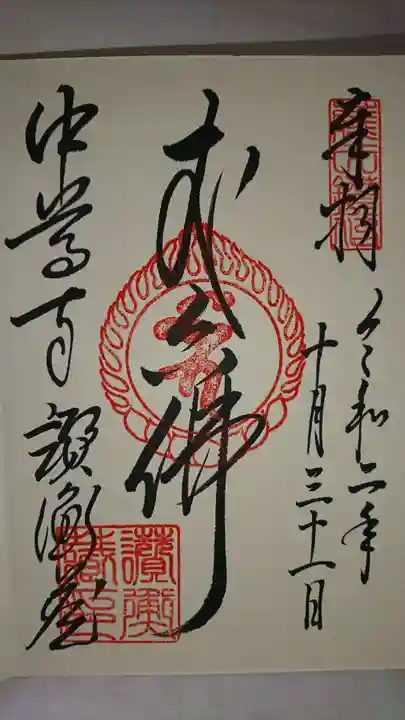 奉拝
令和二年
十月三十一日
丈六佛
中尊寺 讃衡蔵
讚衡
蔵印